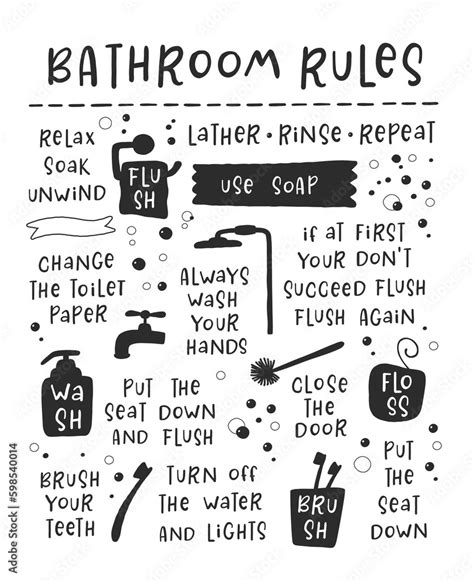 BATHROOM RULES
RELAX
SOAK
UNWIND
FLU
SH
LATHER · RINSE · REPEAT
USE SOAP
CHANGE
THE TOILET
PAPER
ALWAYS
WASH
YOUR
HANDS
if AT FIRST
YOUR DON'T
SUCCEED FLUSH
FLUSH AGAIN
WA
SH
PUT THE
SEAT DOWN
AND FLUSH
CLOSE
THE
DOOR
FLO
SS
BRUSH
YOUR
TEETH
TURN Off
THE WATER
AND LIGHTS
BRU
SH
PUT
THE
SEAT
DOWN
Adobe Stock | #598540014